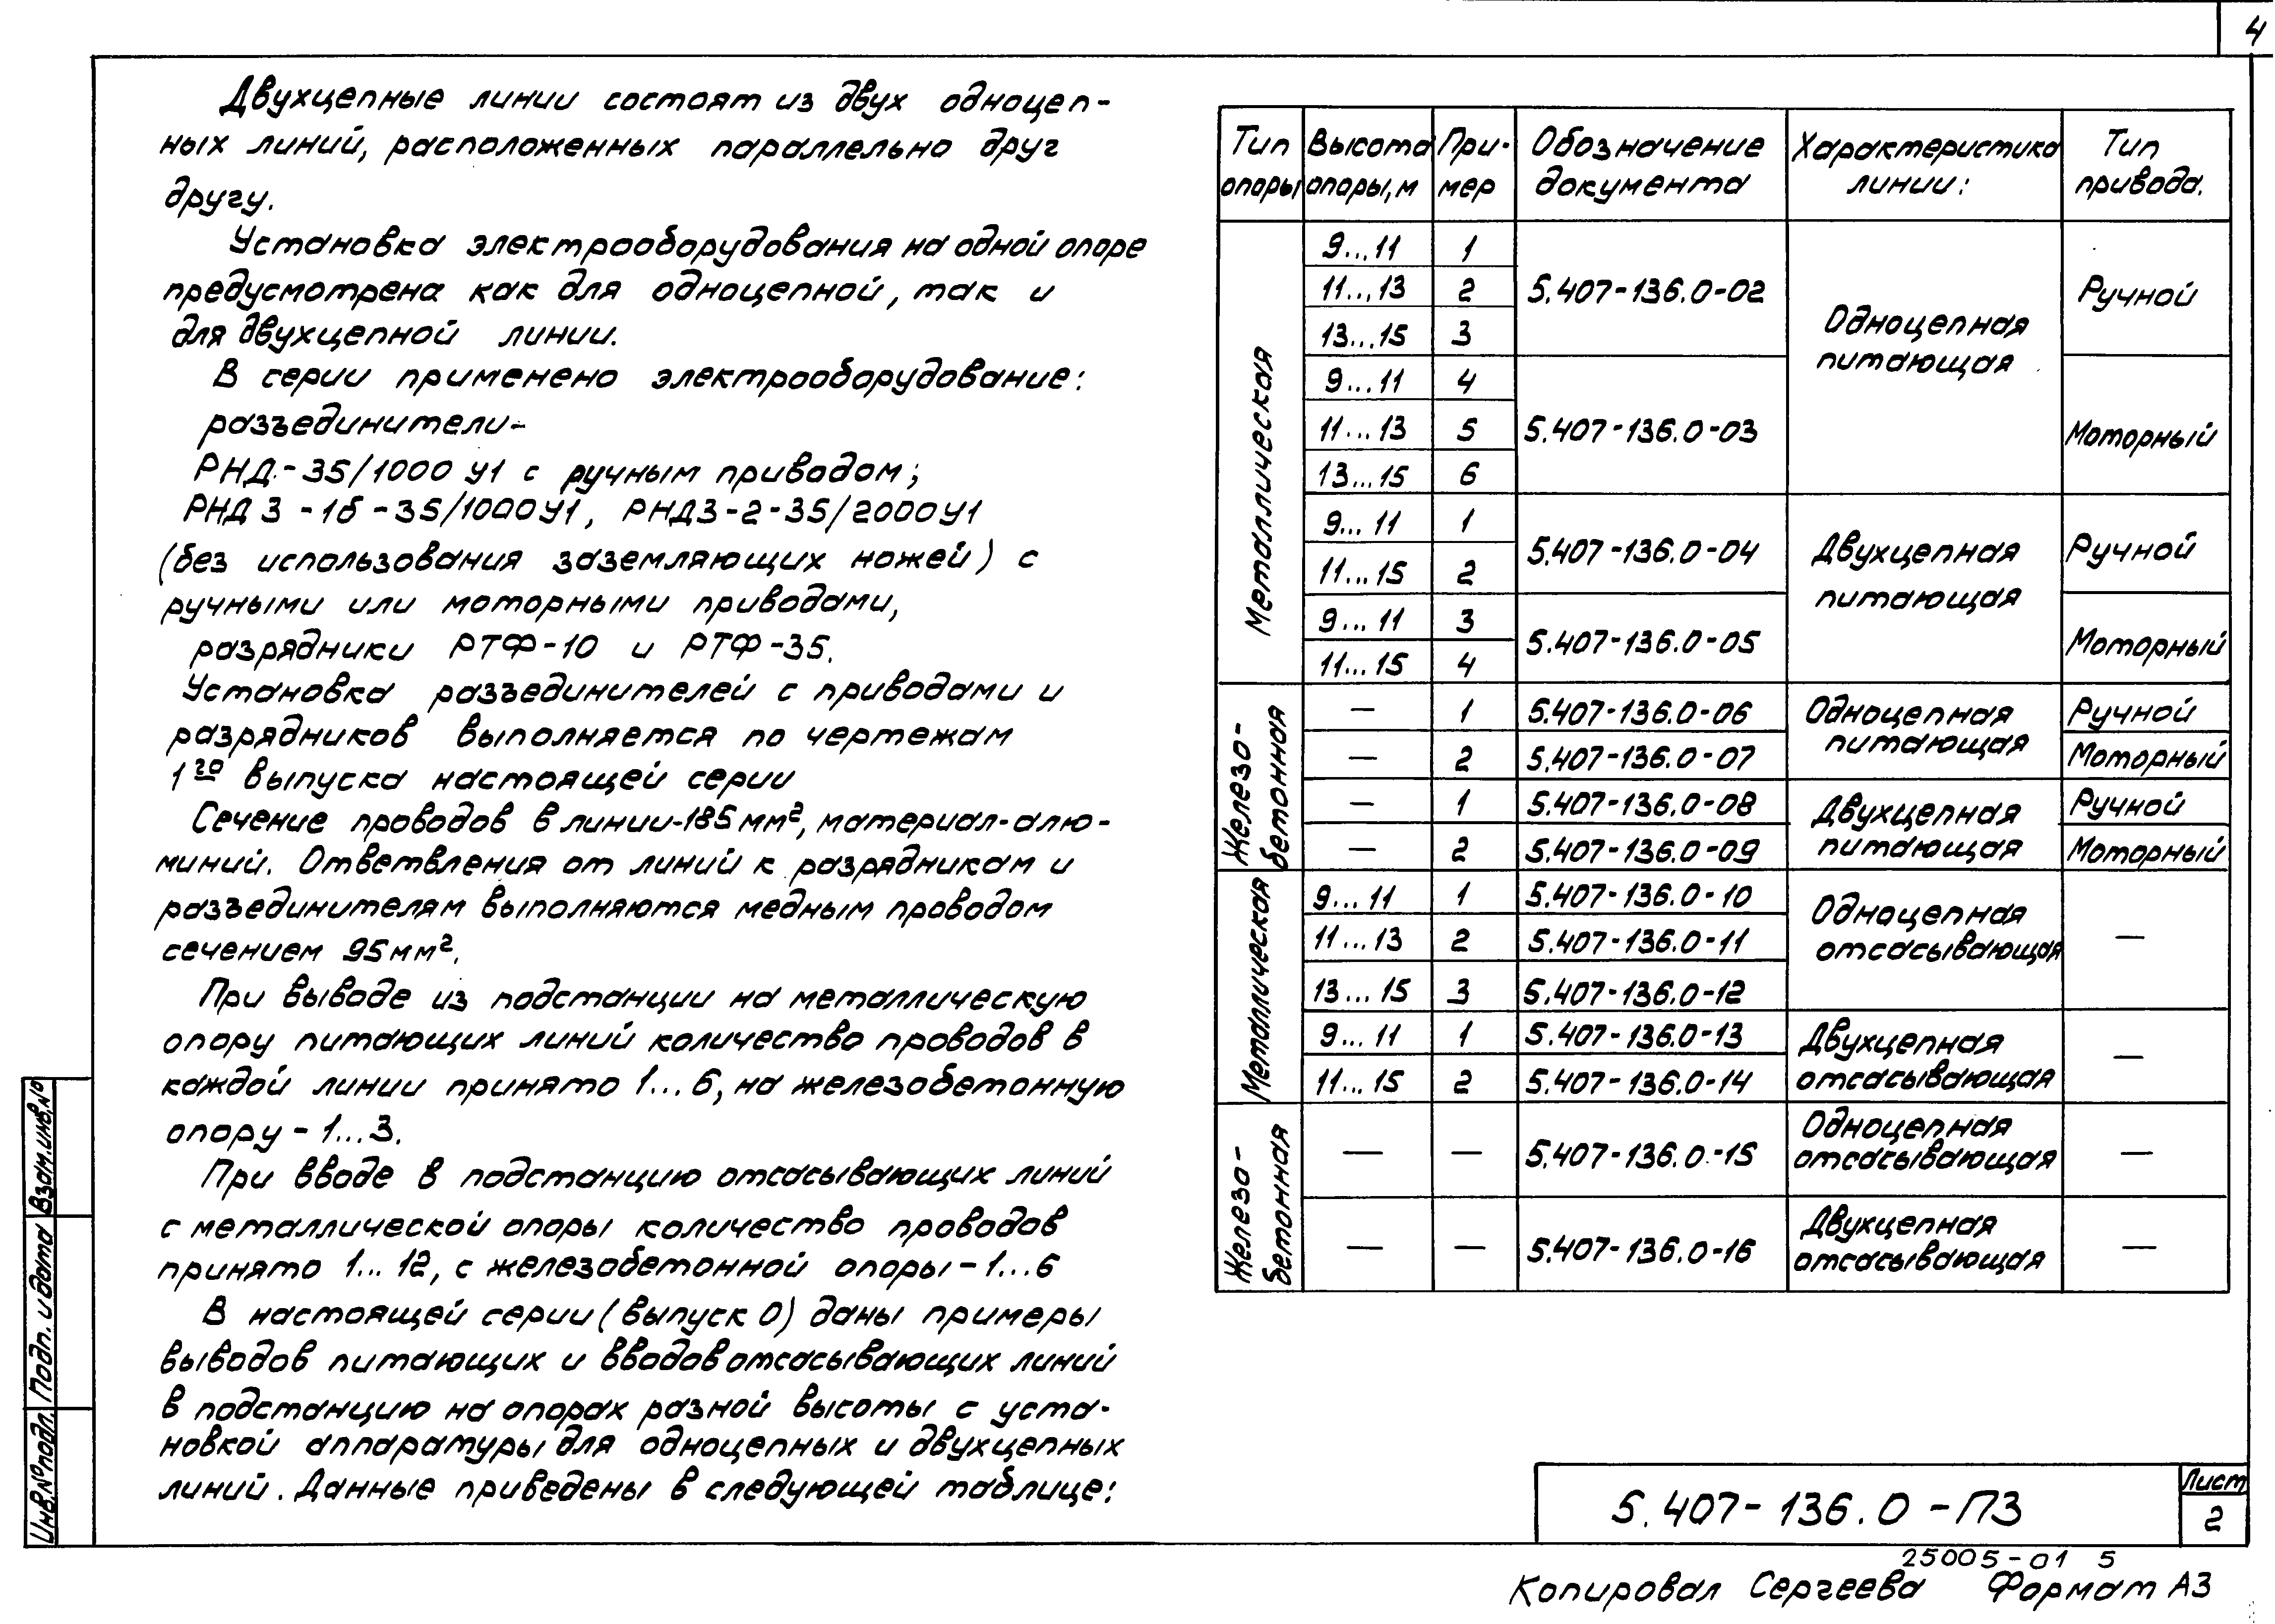 4
Двухцепные линии состоят из двух одноцеп-
ных линий, расположенных параллельно друг
другу.
Установка электрооборудования на одной опоре
предусмотрена как для одноцепной, так и
для двухцепной линии.
В серии применено электрооборудование:
разъединители-
РНД-35/1000 У1 с ручным приводом;
РНДЗ-1б-35/1000У1, РНДЗ-2-35/2000У1
(без использования заземляющих ножей) с
ручными или моторными приводами,
разрядники РТФ-10 и РТФ-35.
Установка разъединителей с приводами и
разрядников выполняется по чертежам
1го выпуска настоящей серии
Сечение проводов в линии-185мм², материал-алю-
миний. Ответвления от линий к разрядникам и
разъединителям выполняются медным проводом
сечением 95мм².
При выводе из подстанции на металлическую
опору питающих линий количество проводов в
каждой линии принято 1...6, на железобетонную
опору-1...3.
При вводе в подстанцию отсасывающих линий
с металлической опоры количество проводов
принято 1...12, с железобетонной опоры-1...6
В настоящей серии (выпуск 0) даны примеры
выводов питающих и вводов отсасывающих линий
в подстанцию на опорах разной высоты с уста-
новкой аппаратуры для одноцепных и двухцепных
линий. Данные приведены в следующей таблице:
Тип Высота При- Обозначение Характеристика Тип
опоры опоры, м мер документа линии: привода.
Металлическая
9...11 1
11...13 2 5.407-136.0-02 Ручной
13...15 3 Одноцепная
питающая
9...11 4
11...13 5 5.407-136.0-03 Моторный
13...15 6
9...11 1
5.407-136.0-04 Двухцепная Ручной
11...15 2
питающая
9...11 3
5.407-136.0-05 Моторный
11...15 4
Железо-
бетонная
— 1 5.407-136.0-06 Одноцепная Ручной
— 2 5.407-136.0-07 питающая Моторный
— 1 5.407-136.0-08 Двухцепная Ручной
— 2 5.407-136.0-09 питающая Моторный
Металлическая
9...11 1 5.407-136.0-10 Одноцепная
11...13 2 5.407-136.0-11 отсасывающая —
13...15 3 5.407-136.0-12
9...11 1 5.407-136.0-13 Двухцепная
11...15 2 5.407-136.0-14 отсасывающая —
Железо-
бетонная
Одноцепная
— — 5.407-136.0-15 отсасывающая —
Двухцепная
— — 5.407-136.0-16 отсасывающая —
Взам.инв.№
Подп. и дата
Инв.№подл.
5.407-136.0-ПЗ
Лист
2
25005-01 5
Копировал Сергеева Формат А3